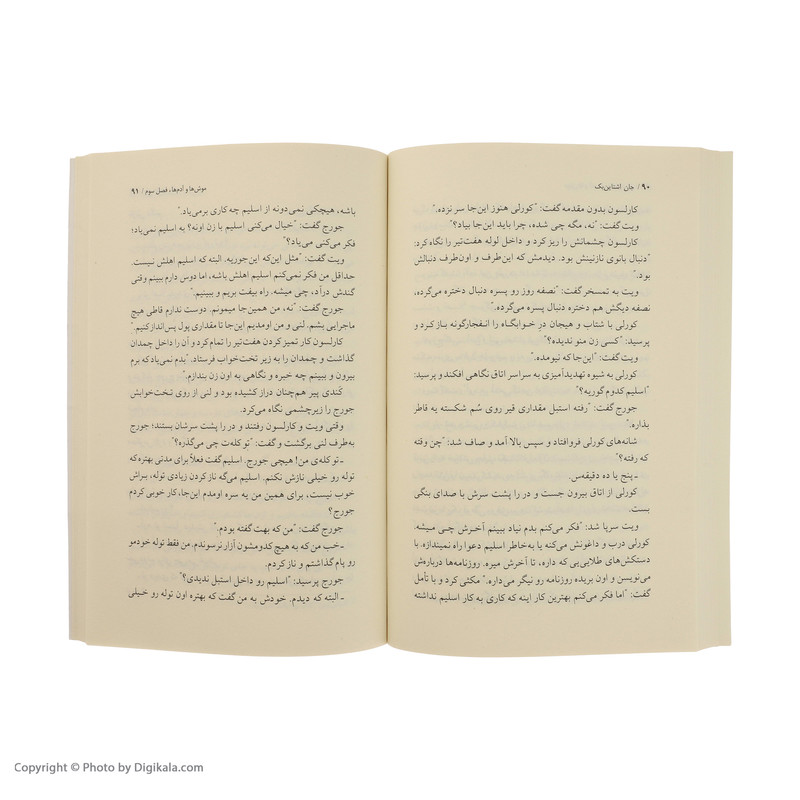 ۹۰ / جان اشتاین‌بک
کارلسون بدون مقدمه گفت: "کورلی هنوز این‌جا سر نزده."
ویت گفت: "نه، مگه چی شده، چرا باید این‌جا بیاد؟"
کارلسون چشمانش را ریز کرد و داخل لوله هفت‌تیر را نگاه کرد:
"دنبال بانوی نازنینش بود. دیدمش که این‌طرف و اون‌طرف دنبالش
بود."
ویت به تمسخر گفت: "نصفه روز رو پسره دنبال دختره می‌گرده،
نصفه دیگش هم دختره دنبال پسره می‌گرده."
کورلی با شتاب و هیجان درِ خوابگاه را انفجارگونه باز کرد و
پرسید: "کسی زن منو ندیده؟"
ویت گفت: "این‌جا که نیومده."
کورلی به شیوه تهدیدآمیزی به سراسر اتاق نگاهی افکند و پرسید:
"اسلیم کدوم گوریه؟"
جورج گفت: "رفته استبل مقداری قیر روی سُم شکسته یه قاطر
بذاره."
شانه‌های کورلی فروافتاد و سپس بالا آمد و صاف شد: "چن وقته
که رفته؟"
ـ پنج یا ده دقیقه‌س.
کورلی از اتاق بیرون جست و در را پشت سرش با صدای بنگی
بست.
ویت سرپا شد: "فکر می‌کنم بدم نیاد ببینم آخرش چی میشه.
کورلی درب و داغونش می‌کنه یا به‌خاطر اسلیم دعوا راه نمیندازه. با
دستکش‌های طلایی‌یی که داره، تا آخرش میره. روزنامه‌ها درباره‌ش
می‌نویسن و اون بریده روزنامه رو نیگر می‌داره." مکثی کرد و با تأمل
گفت: "اما فکر می‌کنم بهترین کار اینه که کاری به کار اسلیم نداشته
موش‌ها و آدم‌ها، فصل سوم / ۹۱
باشه، هیچکی نمی‌دونه از اسلیم چه کاری برمی‌یاد."
جورج گفت: "خیال می‌کنی اسلیم با زن اونه؟ به اسلیم نمی‌یاد؛
فکر می‌کنی می‌یاد؟"
ویت گفت: "مثل این‌که این‌جوریه. البته که اسلیم اهلش نیست.
حداقل من فکر نمی‌کنم اسلیم اهلش باشه، اما دوس دارم ببینم وقتی
گندش درآد، چی میشه. راه بیفت بریم و ببینیم."
جورج گفت: "نه، من همین‌جا میمونم. دوست ندارم قاطی هیچ
ماجرایی بشم. لنی و من اومدیم این‌جا تا مقداری پول پس‌انداز کنیم."
کارلسون کار تمیز کردن هفت‌تیر را تمام کرد و آن را داخل چمدان
گذاشت و چمدان را به زیر تخت‌خواب فرستاد. "بدم نمی‌یاد که برم
بیرون و ببینم چه خبره و نگاهی به اون زن بندازم."
کَندی پیر هم‌چنان دراز کشیده بود و لنی از روی تخت‌خوابش
جورج را زیرچشمی نگاه می‌کرد.
وقتی ویت و کارلسون رفتند و در را پشت سرشان بستند؛ جورج
به‌طرف لنی برگشت و گفت: "تو کله‌ت چی می‌گذره؟"
ـ تو کله‌ی من! هیچی جورج. اسلیم گفت فعلاً برای مدتی بهتره که
توله رو خیلی نازش نکنم. اسلیم می‌گه ناز کردن زیادی توله، براش
خوب نیست، برای همین من یه سره اومدم این‌جا، کار خوبی کردم
جورج؟
جورج گفت: "من که بهت گفته بودم."
ـ خب من که به هیچ کدومشون آزار نرسوندم. من فقط توله خودمو
رو پام گذاشتم و ناز کردم.
جورج پرسید: "اسلیم رو داخل استبل ندیدی؟"
ـ البته که دیدم. خودش به من گفت که بهتره اون توله رو خیلی
Copyright © Photo by Digikala.com